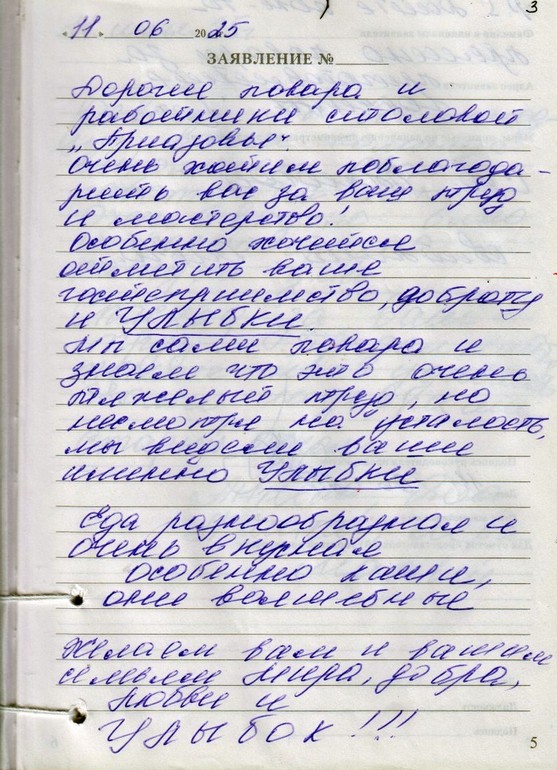 3
"11" 06 2025
ЗАЯВЛЕНИЕ №
Дорогие повара и
работники столовой
„Приазовье".
Очень хотим поблагода-
рить вас за ваш труд
и мастерство!
Особенно хочется
отметить ваше
гостеприимство, доброту
и УЛЫБКИ.
Мы сами повара и
знаем что это очень
тяжелый труд, но
несмотря на усталость,
мы видели ваши
именно Улыбки
Еда разнообразная и
очень вкусная
особенно каши,
они волшебные
Желаем вам и вашим
семьям мира, добра,
любви и
Улыбок!!!
5